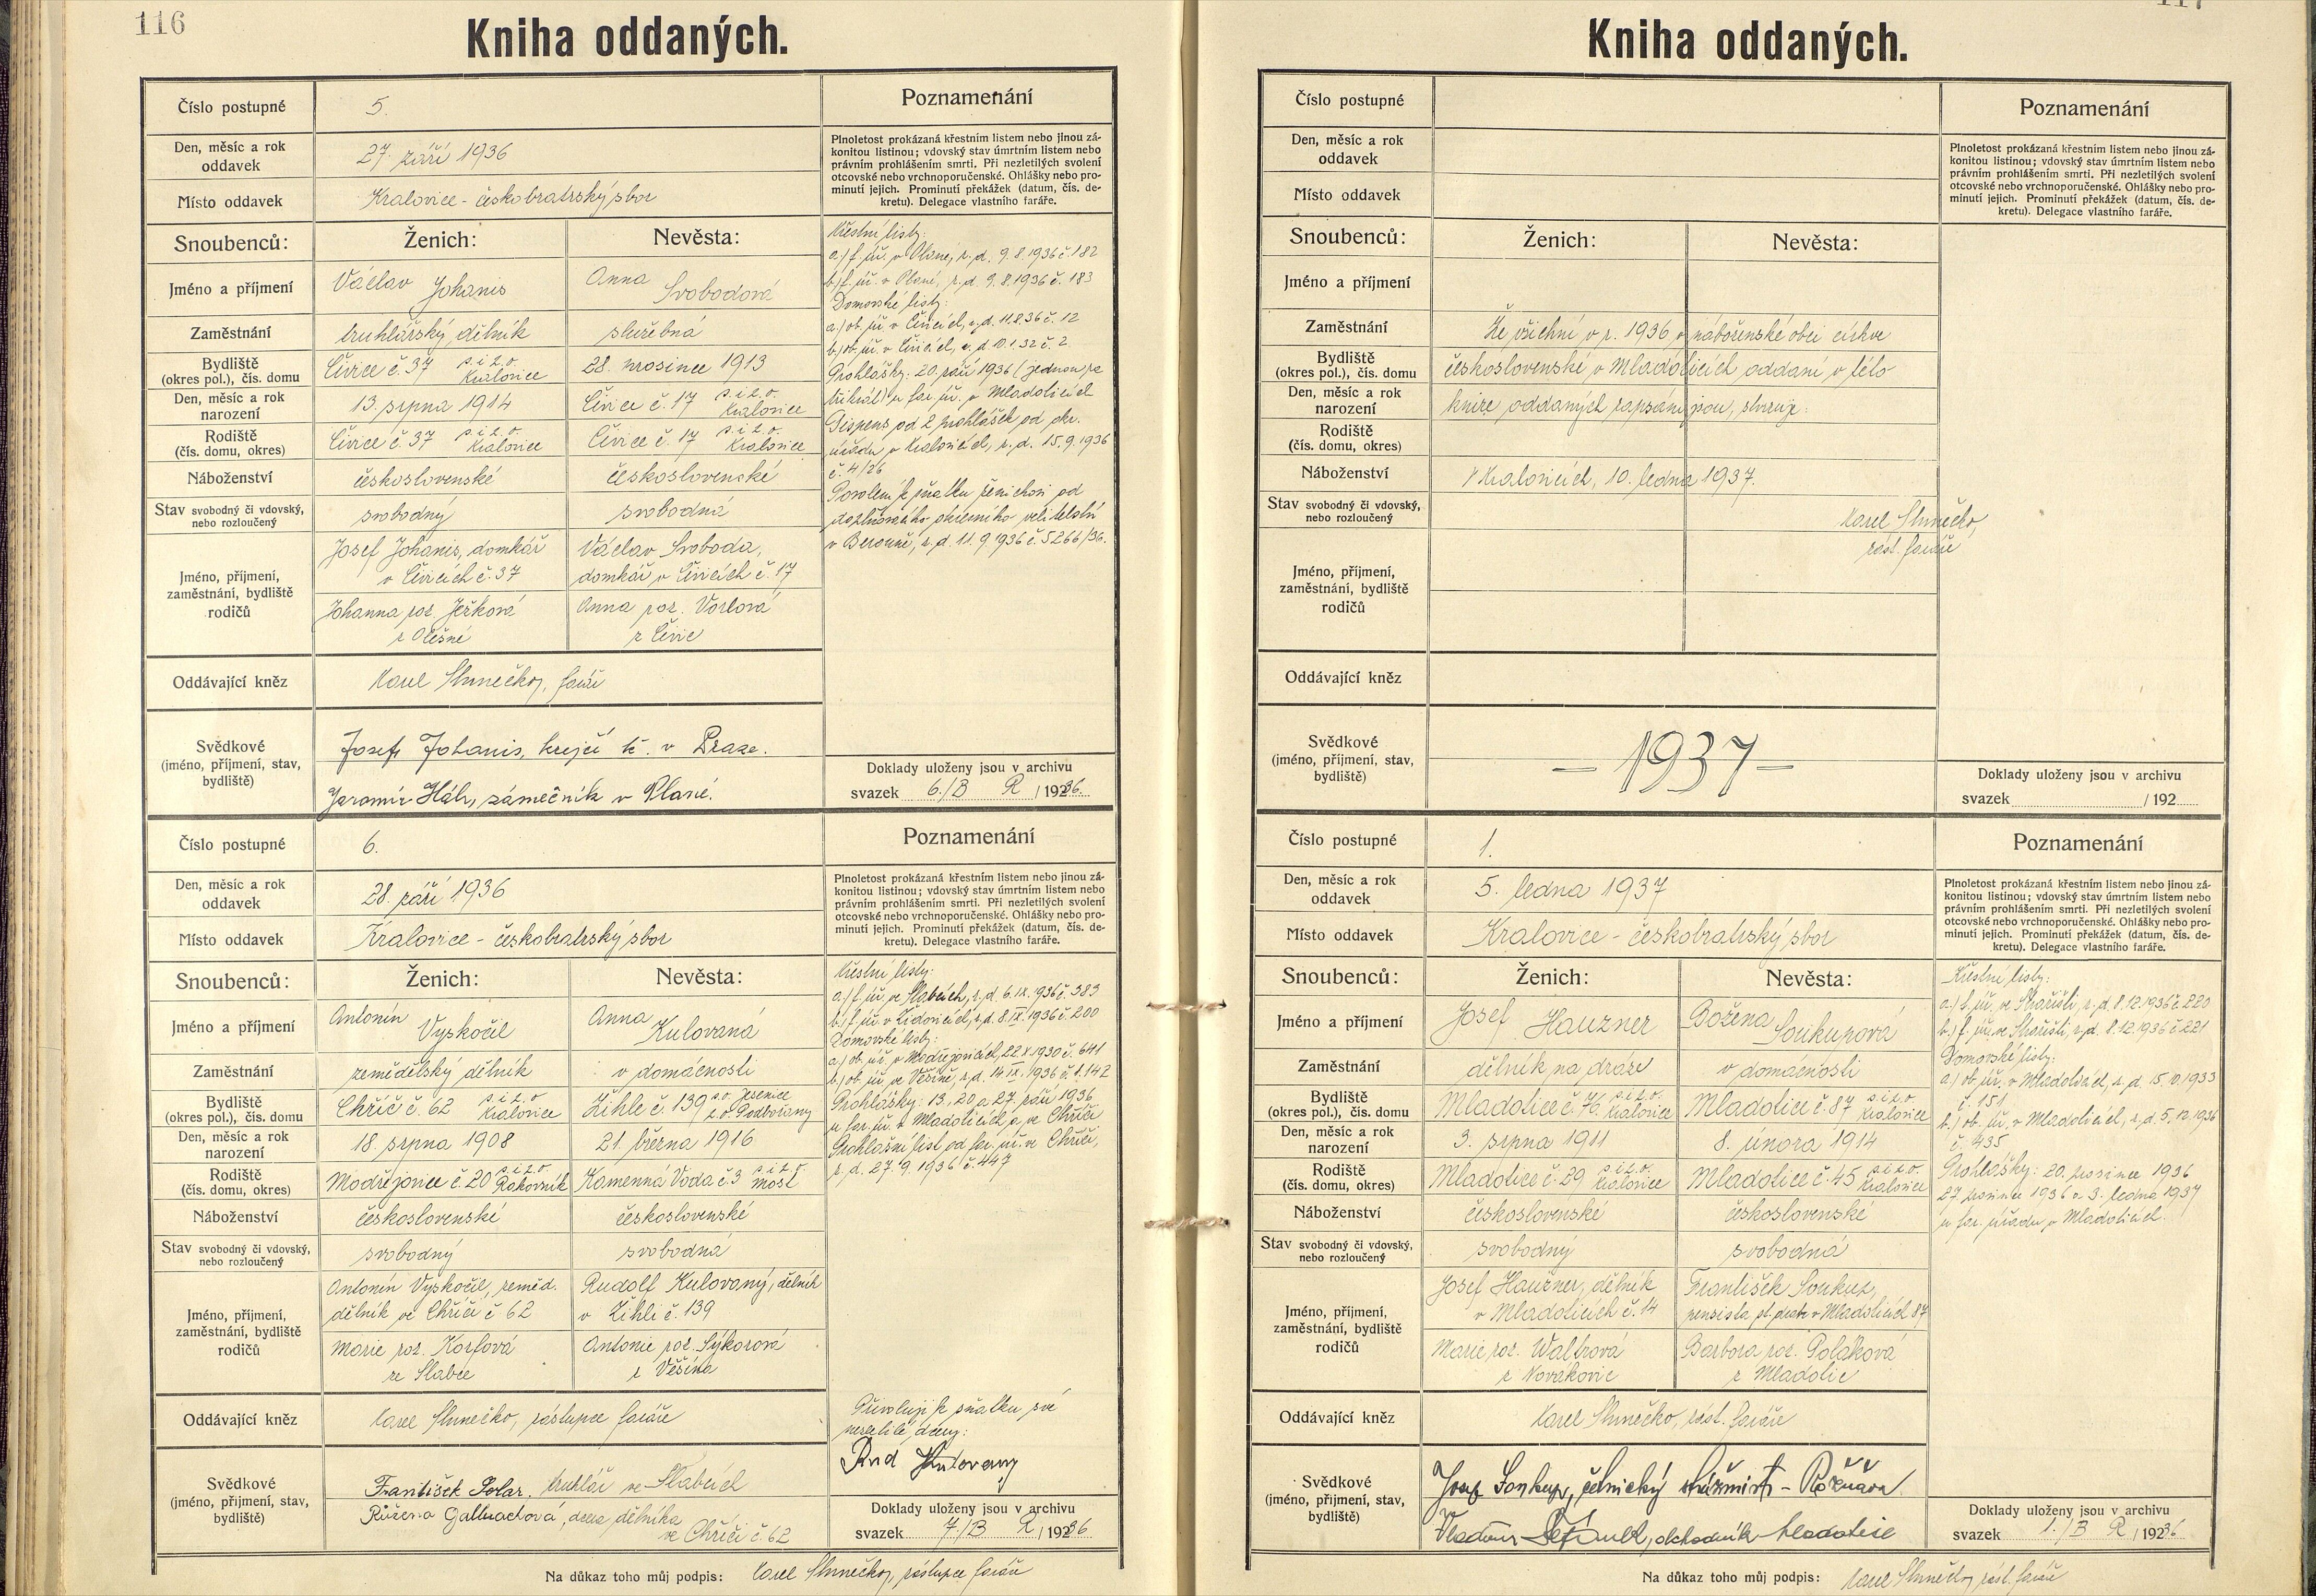 116
Kniha oddaných.
Číslo postupné
5.
Poznamenání
Den, měsíc a rok
oddavek
27. září 1936
Místo oddavek
Kralovice - českobratrský sbor
Plnoletost prokázaná křestním listem nebo jinou zá-
konitou listinou; vdovský stav úmrtním listem nebo
právním prohlášením smrti. Při nezletilých svolení
otcovské nebo vrchnoporučenské. Ohlášky nebo pro-
minutí jejich. Prominutí překážek (datum, čís. de-
kretu). Delegace vlastního faráře.
Snoubenců:
Ženich:
Nevěsta:
Jméno a příjmení
Václav Johanis
Anna Svobodová
Zaměstnání
truhlářský dělník
služebná
Bydliště
(okres pol.), čís. domu
Čivice č. 37 p. i z. o. Kralovice
28. prosince 1913
Den, měsíc a rok
narození
13. srpna 1914
Čivice č. 17 p. i z. o. Kralovice
Rodiště
(čís. domu, okres)
Čivice č. 37 p. i z. o. Kralovice
Čivice č. 17 p. i z. o. Kralovice
Náboženství
československé
československé
Stav svobodný či vdovský,
nebo rozloučený
svobodný
svobodná
Jméno, příjmení,
zaměstnání, bydliště
rodičů
Josef Johanis, domkář
v Čivicích č. 37
Václav Svoboda,
domkář v Čivicích č. 17
Johanna roz. Ježková
z Olešné
Anna roz. Vorlová
z Čivic
Křestní listy:
a.) f. úř. v Plané, z. d. 9. 8. 1936 č. 182
b.) f. úř. v Plané, z. d. 9. 8. 1936 č. 183
Domovské listy:
a.) ob. úř. v Čivicích, z. d. 11. 8. 36 č. 12
b.) ob. úř. v Čivicích, z. d. 10. 1. 32 č. 2
Prohlášky: 20. září 1936 (jednou za
třikrát) u far. úř. v Mladoticích
Dispens od 2 prohlášek od okr.
úřadu v Kralovicích, z. d. 15. 9. 1936
č. 4/26
Povolení k sňatku ženichovi od
doplňovacího okresního velitelství
v Berouně, z. d. 11. 9. 1936 č. 5266/36.
Oddávající kněz
Karel Slunečko, farář
Svědkové
(jméno, příjmení, stav,
bydliště)
Josef Johanis, krejčí t. č. v Praze.
Jaromír Háh, zámečník v Plané.
Doklady uloženy jsou v archivu
svazek 6./B R /1936.
Číslo postupné
6.
Poznamenání
Den, měsíc a rok
oddavek
28. září 1936
Místo oddavek
Kralovice - českobratrský sbor
Plnoletost prokázaná křestním listem nebo jinou zá-
konitou listinou; vdovský stav úmrtním listem nebo
právním prohlášením smrti. Při nezletilých svolení
otcovské nebo vrchnoporučenské. Ohlášky nebo pro-
minutí jejich. Prominutí překážek (datum, čís. de-
kretu). Delegace vlastního faráře.
Snoubenců:
Ženich:
Nevěsta:
Jméno a příjmení
Antonín Vyskočil
Anna Kulovaná
Zaměstnání
zemědělský dělník
v domácnosti
Bydliště
(okres pol.), čís. domu
Chříč č. 62 p. i z. o. Kralovice
Žihle č. 139 s. o. Jesenice z. o. Podbořany
Den, měsíc a rok
narození
18. srpna 1908
21. března 1916
Rodiště
(čís. domu, okres)
Modřejovice č. 20 p. i z. o. Rakovník
Kamenná Voda č. 3 p. i z. o. Most
Náboženství
československé
československé
Stav svobodný či vdovský,
nebo rozloučený
svobodný
svobodná
Jméno, příjmení,
zaměstnání, bydliště
rodičů
Antonín Vyskočil, zeměd.
dělník ve Chříči č 62
Rudolf Kulovaný, dělník
v Žihli č. 139
Marie roz. Korfová
ze Slabce
Antonie roz. Sýkorová
z Věšína
Křestní listy:
a.) f. úř. ve Slabcích, z. d. 6. IX. 1936 č. 383
b.) f. úř. v Židovicích, z. d. 8. IX. 1936 č. 200
Domovské listy:
a.) ob. úř. v Modřejovicích, 22. X. 1930 č. 641
b.) ob. úř. ve Věšíně, z. d. 14. IX. 1936 č. 1.142
Prohlášky: 13. 20. a 27. září 1936
u far. úř. v Mladoticích a ve Chříči
Prohlašní list od far. úř. ve Chříči,
z. d. 27. 9. 1936 č. 447
Přivoluji k sňatku své
nezletilé dcery:
Rud Kulovaný
Oddávající kněz
Karel Slunečko, zástupce faráře
Svědkové
(jméno, příjmení, stav,
bydliště)
František Solar, truhlář ve Slabcích
Růžena dcera dělníka
ve Chříči č 62
Doklady uloženy jsou v archivu
svazek 7./B R /1936
Na důkaz toho můj podpis: Karel Slunečko, zástupce faráře
117
Kniha oddaných.
Číslo postupné
Poznamenání
Den, měsíc a rok
oddavek
Místo oddavek
Plnoletost prokázaná křestním listem nebo jinou zá-
konitou listinou; vdovský stav úmrtním listem nebo
právním prohlášením smrti. Při nezletilých svolení
otcovské nebo vrchnoporučenské. Ohlášky nebo pro-
minutí jejich. Prominutí překážek (datum, čís. de-
kretu). Delegace vlastního faráře.
Snoubenců:
Ženich:
Nevěsta:
Jméno a příjmení
Zaměstnání
Že všichni v r. 1936 v náboženské obci církve
Bydliště
(okres pol.), čís. domu
československé v Mladoticích oddaní v této
Den, měsíc a rok
narození
knize oddaných zapsáni jsou, stvrzuje:
Rodiště
(čís. domu, okres)
Náboženství
V Kralovicích, 10. ledna 1937.
Stav svobodný či vdovský,
nebo rozloučený
Karel Slunečko,
zást. faráře
Jméno, příjmení,
zaměstnání, bydliště
rodičů
Oddávající kněz
Svědkové
(jméno, příjmení, stav,
bydliště)
— 1937 —
Doklady uloženy jsou v archivu
svazek /192
Číslo postupné
1.
Poznamenání
Den, měsíc a rok
oddavek
5. ledna 1937
Místo oddavek
Kralovice - českobratrský sbor
Plnoletost prokázaná křestním listem nebo jinou zá-
konitou listinou; vdovský stav úmrtním listem nebo
právním prohlášením smrti. Při nezletilých svolení
otcovské nebo vrchnoporučenské. Ohlášky nebo pro-
minutí jejich. Prominutí překážek (datum, čís. de-
kretu). Delegace vlastního faráře.
Snoubenců:
Ženich:
Nevěsta:
Jméno a příjmení
Josef Hauzner
Božena Soukupová
Zaměstnání
dělník na dráze
v domácnosti
Bydliště
(okres pol.), čís. domu
Mladotice č. 76. p. i z. o. Kralovice
Mladotice č. 87 p. i z. o. Kralovice
Den, měsíc a rok
narození
3. srpna 1911
8. února 1914
Rodiště
(čís. domu, okres)
Mladotice č. 29 p. i z. o. Kralovice
Mladotice č. 45 p. i z. o. Kralovice
Náboženství
československé
československé
Stav svobodný či vdovský,
nebo rozloučený
svobodný
svobodná
Jméno, příjmení,
zaměstnání, bydliště
rodičů
Josef Hauzner, dělník
v Mladoticích č. 14
František Soukup,
pensista st. drah v Mladoticích 87
Marie roz. Waltrová
z Novákovic
Barbora roz. Poláková
z Mladotic
Křestní listy:
a.) f. úř. ve Strařišti, z. d. 8. 12. 1936 č. 220
b.) f. úř. ve Strařišti, z. d. 8. 12. 1936 č. 221
Domovské listy:
a.) ob. úř. v Mladoticích, z. d. 15. 10. 1933
č. 151
b.) ob. úř. v Mladoticích, z. d. 5. 12. 1936
č. 435
Prohlášky: 20. prosince 1936
27. prosince 1936 a 3. ledna 1937
u far. úřadu v Mladoticích.
Oddávající kněz
Karel Slunečko, zást. faráře
Svědkové
(jméno, příjmení, stav,
bydliště)
Josef Soukup, četnický strážmistr - Rožňava
Vladimír obchodník Mladotice
Doklady uloženy jsou v archivu
svazek 1./B R /1936
Na důkaz toho můj podpis: Karel Slunečko, zást. faráře